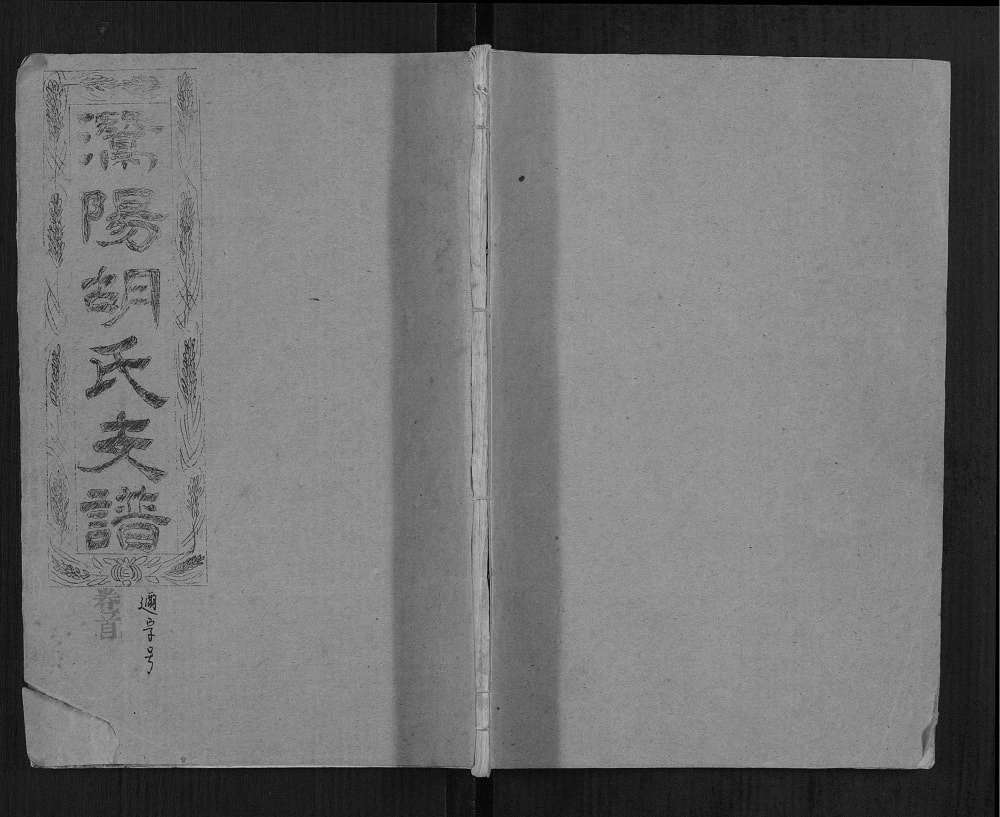 陽胡氏支譜
卷首
邇字号